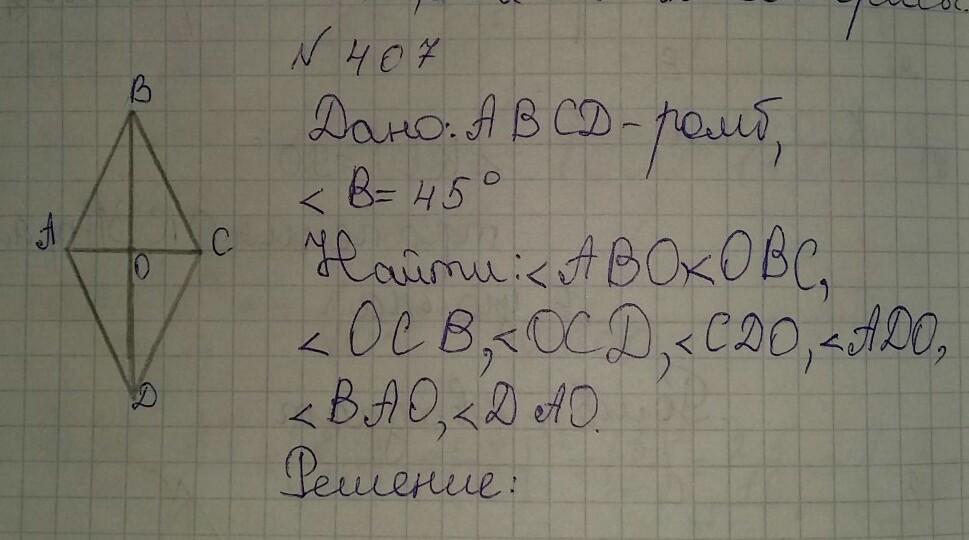 N 407
B
Дано: ABCD - ромб,
< B = 45°
A
C
O
Найти: < ABO < OBC,
< OCB, < OCD, < CDO, < ADO,
D
< BAO, < DAO.
Решение: